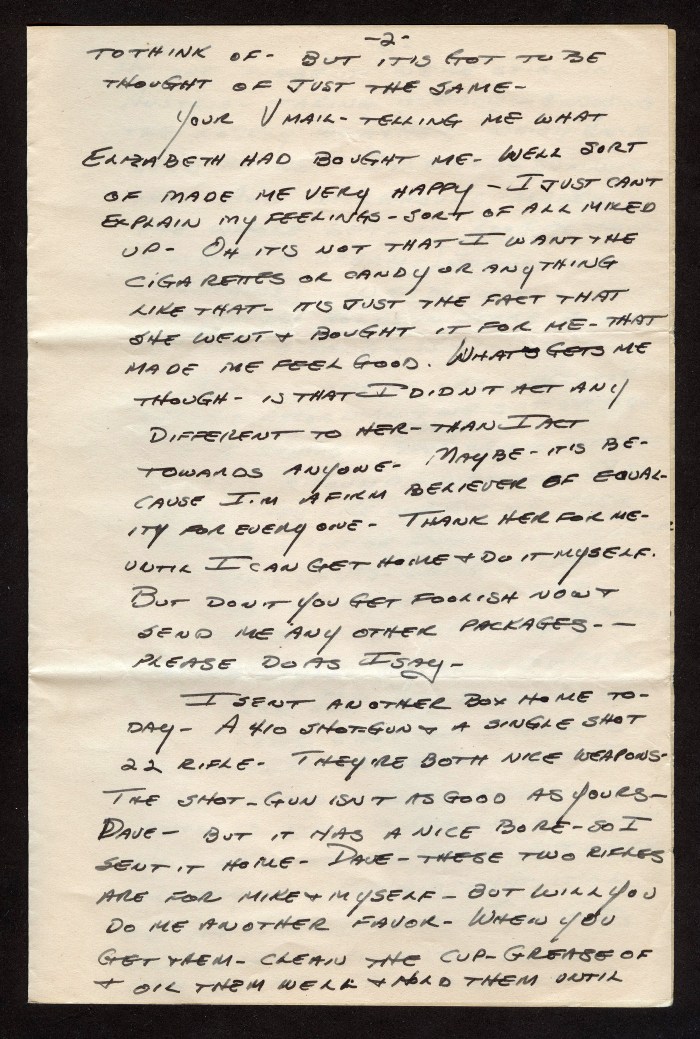 -2-
TO THINK OF- BUT IT'S GOT TO BE
THOUGHT OF JUST THE SAME-
YOUR V MAIL- TELLING ME WHAT
ELIZABETH HAD BOUGHT ME- WELL SORT
OF MADE ME VERY HAPPY - I JUST CAN'T
EXPLAIN MY FEELINGS - SORT OF ALL MIXED
UP- OH IT'S NOT THAT I WANT THE
CIGARETTES OR CANDY OR ANYTHING
LIKE THAT- IT'S JUST THE FACT THAT
SHE WENT & BOUGHT IT FOR ME- THAT
MADE ME FEEL GOOD. WHAT GETS ME
THOUGH- IS THAT I DIDN'T ACT ANY
DIFFERENT TO HER- THAN I ACT
TOWARDS ANYONE- MAYBE- IT'S BE-
CAUSE I'M A FIRM BELIEVER OF EQUAL-
ITY FOR EVERYONE- THANK HER FOR ME-
UNTIL I CAN GET HOME & DO IT MYSELF.
BUT DON'T YOU GET FOOLISH NOW &
SEND ME ANY OTHER PACKAGES- -
PLEASE DO AS I SAY-
I SENT ANOTHER BOX HOME TO-
DAY- A 410 SHOT-GUN & A SINGLE SHOT
22 RIFLE- THEY'RE BOTH NICE WEAPONS-
THE SHOT-GUN ISN'T AS GOOD AS YOURS-
DAVE- BUT IT HAS A NICE BORE-SO I
SENT IT HOME- DAVE-THESE TWO RIFLES
ARE FOR MIKE & MYSELF- BUT WILL YOU
DO ME ANOTHER FAVOR- WHEN YOU
GET THEM- CLEAN THE CUP-GREASE OF
& OIL THEM WELL & HOLD THEM UNTIL